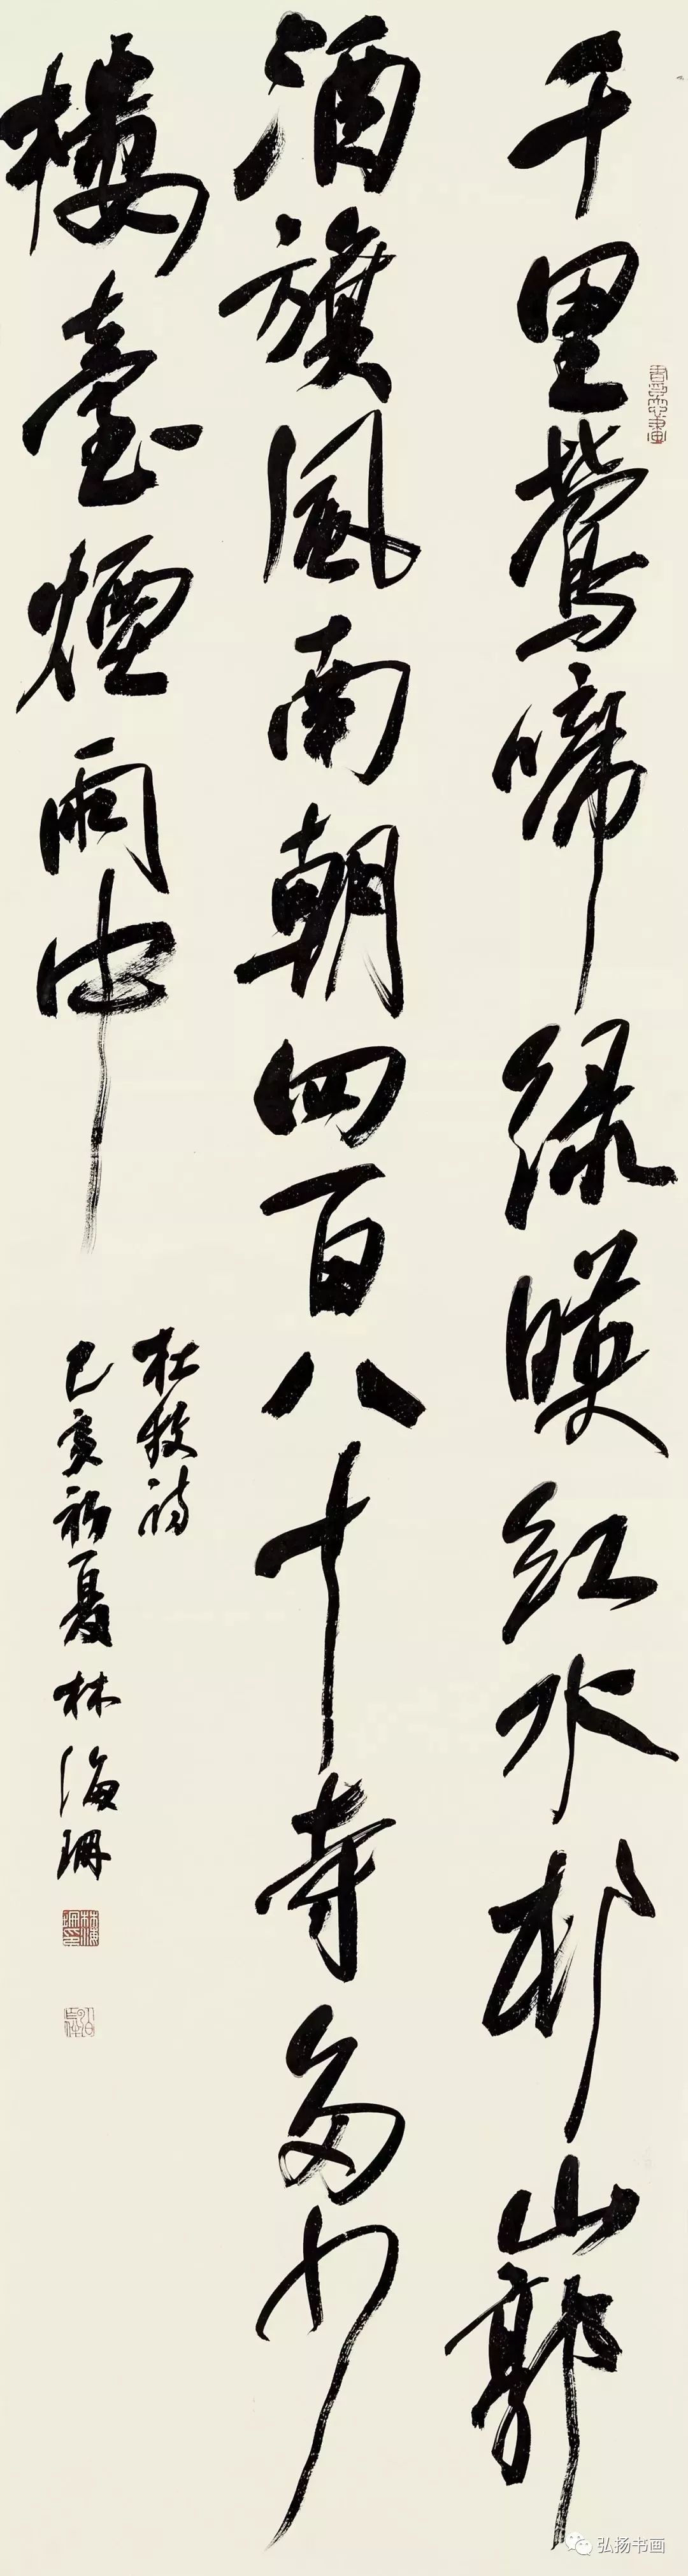 千里鶯啼绿暎红水邨山郭
酒旗風南朝四百八十寺多少
樓臺煙雨中
杜牧诗
己亥初夏林海珊
弘扬书画